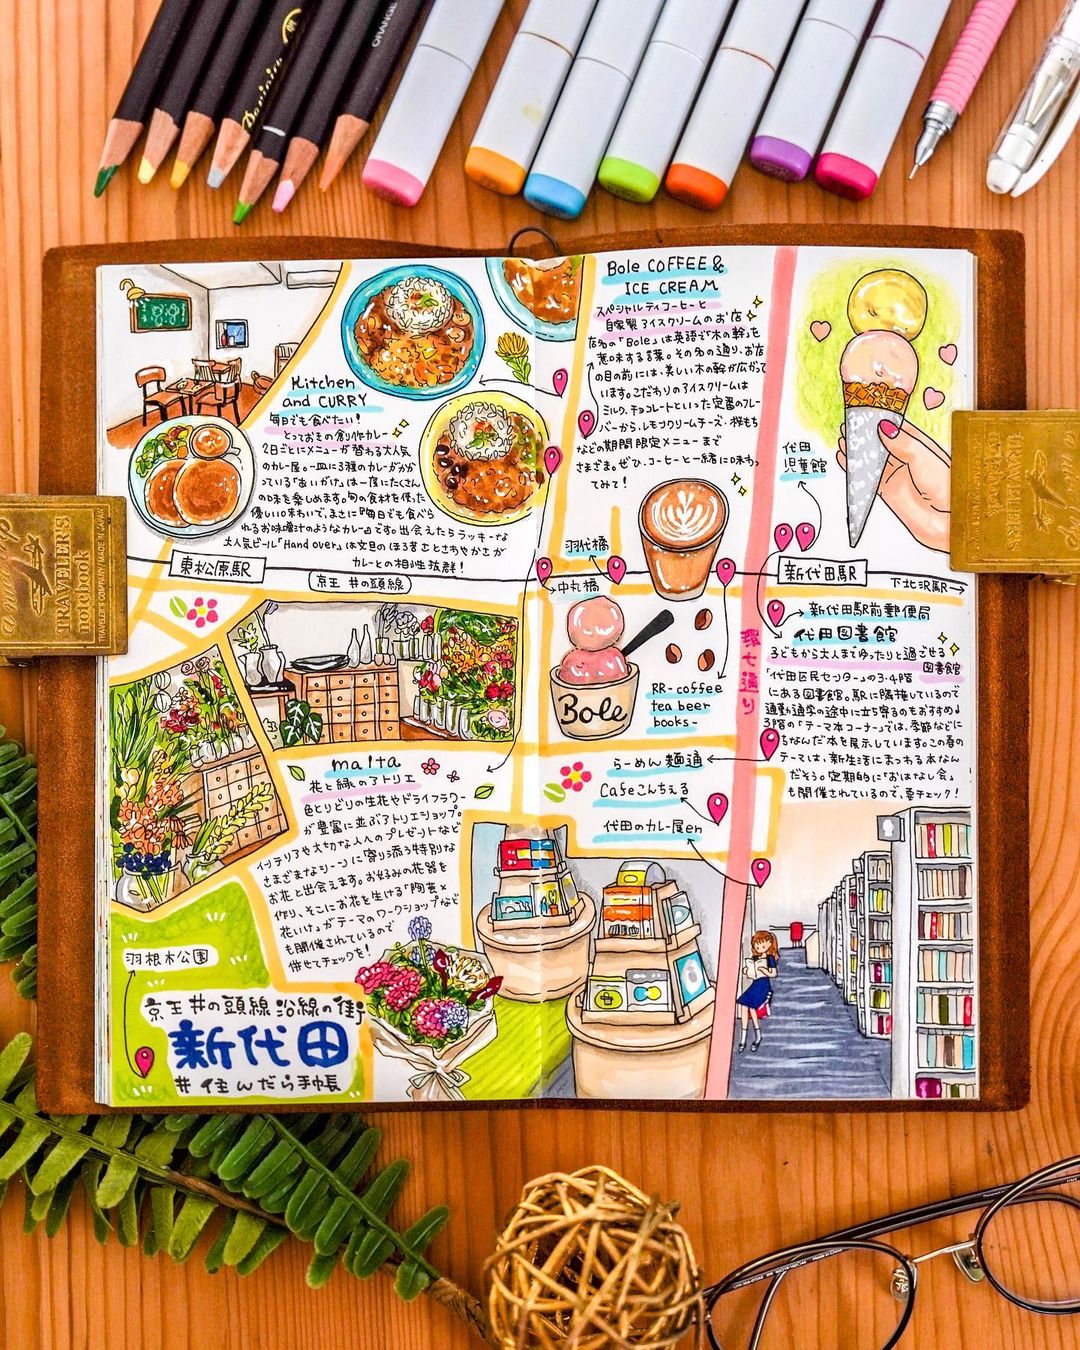 Kitchen
and CURRY
毎日でも食べたい!
とっておきの創作カレー
2日ごとにメニューが替わる大人気
のカレー屋。一皿に3種のカレーがかか
っている「あいがけ」は一度にたくさん
の味を楽しめます。旬の食材を使った
優しい味わいで、まさに『毎日でも食べら
れるお味噌汁のようなカレー』。出会えたらラッキーな
大人気ビール「Hand over」は文旦のほろ苦さとさわやかさが
カレーとの相性抜群!
Bole COFFEE &
ICE CREAM
スペシャルティコーヒーと
自家製アイスクリームのお店
店名の「Bole」は英語で「木の幹」を
意味する言葉。その名の通り、お店
の目の前には、美しい木の幹が広がって
います。こだわりのアイスクリームは
ミルク、チョコレートといった定番のフレー
バーから、レモンクリームチーズ・桜もち
などの期間限定メニューまで
さまざま。ぜひ、コーヒーと一緒に味わっ
てみて!
代田
児童館
東松原駅
京王 井の頭線
羽代橋
中丸橋
新代田駅
下北沢駅→
環七通り
新代田駅前郵便局
代田図書館
子どもから大人までゆったりと過ごせる
図書館
「代田区民センター」の3・4階
にある図書館。駅に隣接しているので
通勤通学の途中に立ち寄るのもおすすめ♪
3階の「テーマ本コーナー」では、季節などに
ちなんだ本を展示しています。この春の
テーマは、新生活にまつわる本なん
だそう。定期的に「おはなし会」
も開催されているので、要チェック!
Bole
RR-coffee
tea beer
books-
らーめん 麺通
Cafeこんちぇる
代田のカレー屋en
malta
花と緑のアトリエ
色とりどりの生花やドライフラワー
が豊富に並ぶアトリエショップ。
インテリアや大切な人へのプレゼントなど
さまざまなシーンに寄り添う特別な
お花と出会えます。お好みの花器を
作り、そこにお花を生ける「陶芸×
花いけ」がテーマのワークショップなど
も開催されているので
併せてチェックを!
羽根木公園
京王井の頭線沿線の街
新代田
#住んだら手帳
TRAVELER'S
notebook
TRAVELER'S COMPANY MADE IN JAPAN
ORANGE